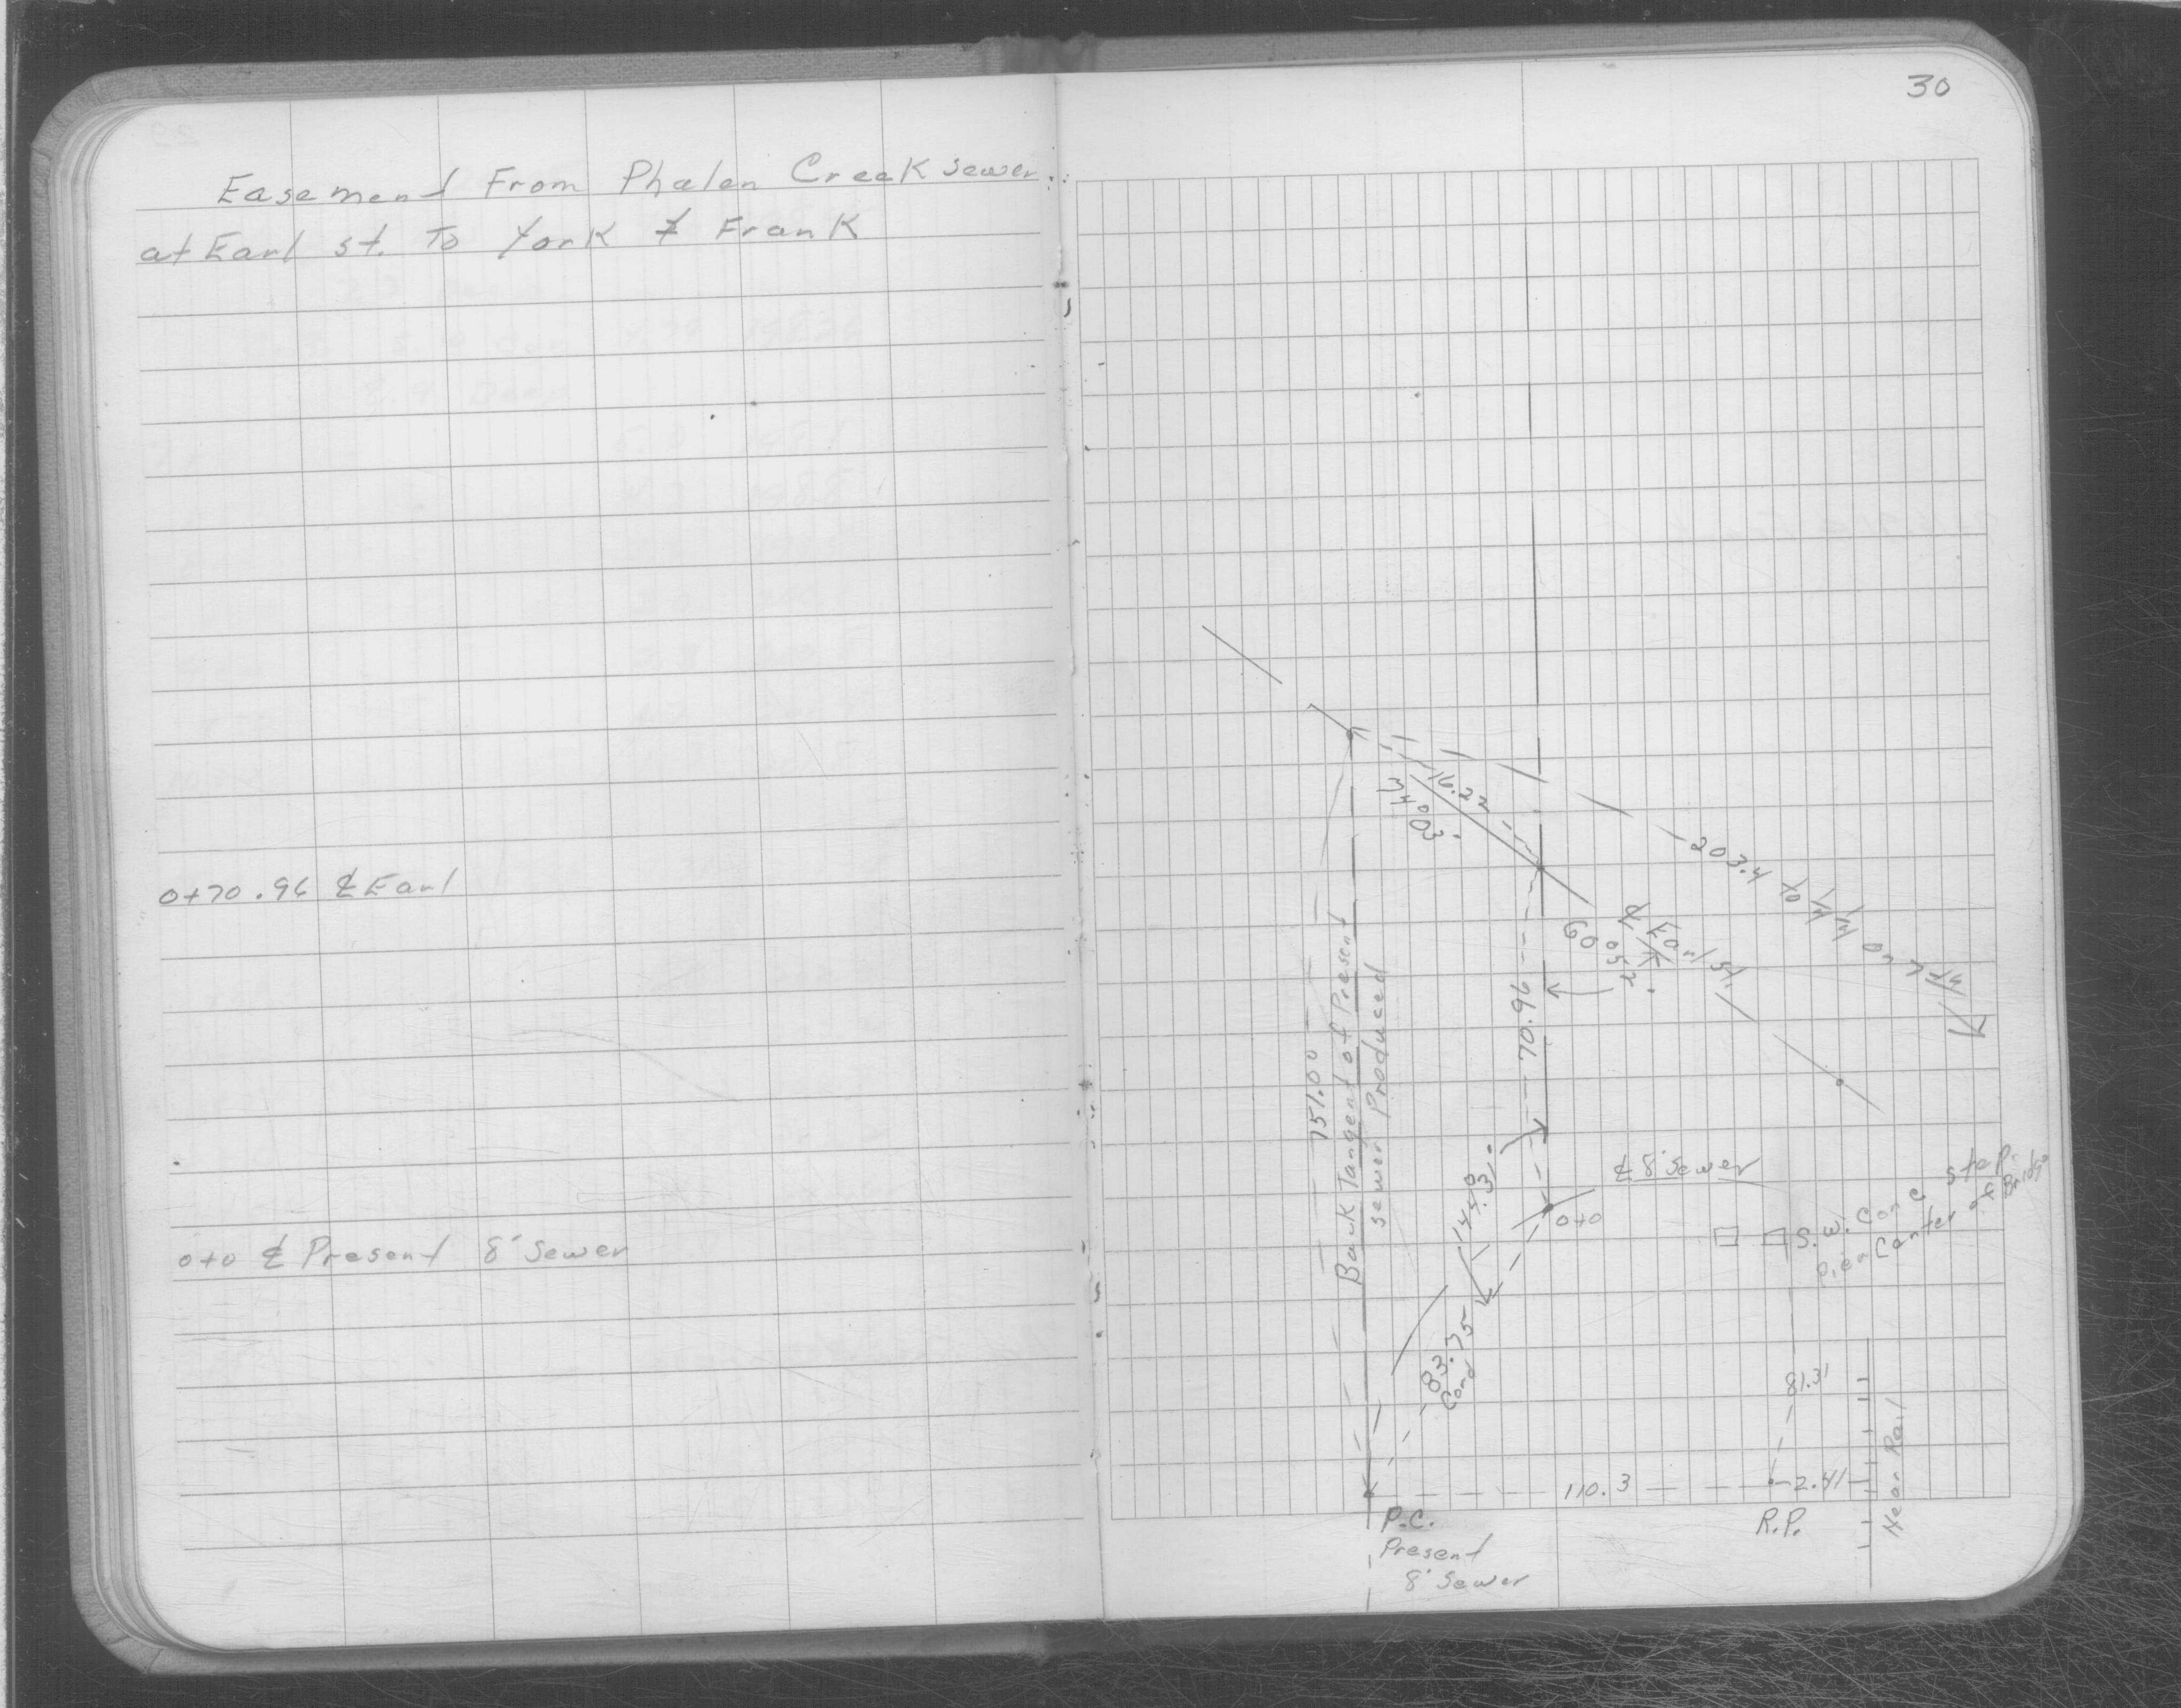 30
Easement From Phalen Creek sewer
at Earl st. To York & Frank
0+70.96 ℄ Earl
0+0 ℄ Present 8' Sewer
16.22
34°03'
203.4 To
69°52'
℄ York St.
70.96
151.00
Back Tangent of Present
sewer Produced
144°31'
℄ 8' Sewer
0+0
S.W. Cor
step
pier Center of Bridge
83.75
Cord
81.31
Near Rail
110.3
2.41
P.C.
Present
8' Sewer
R.P.